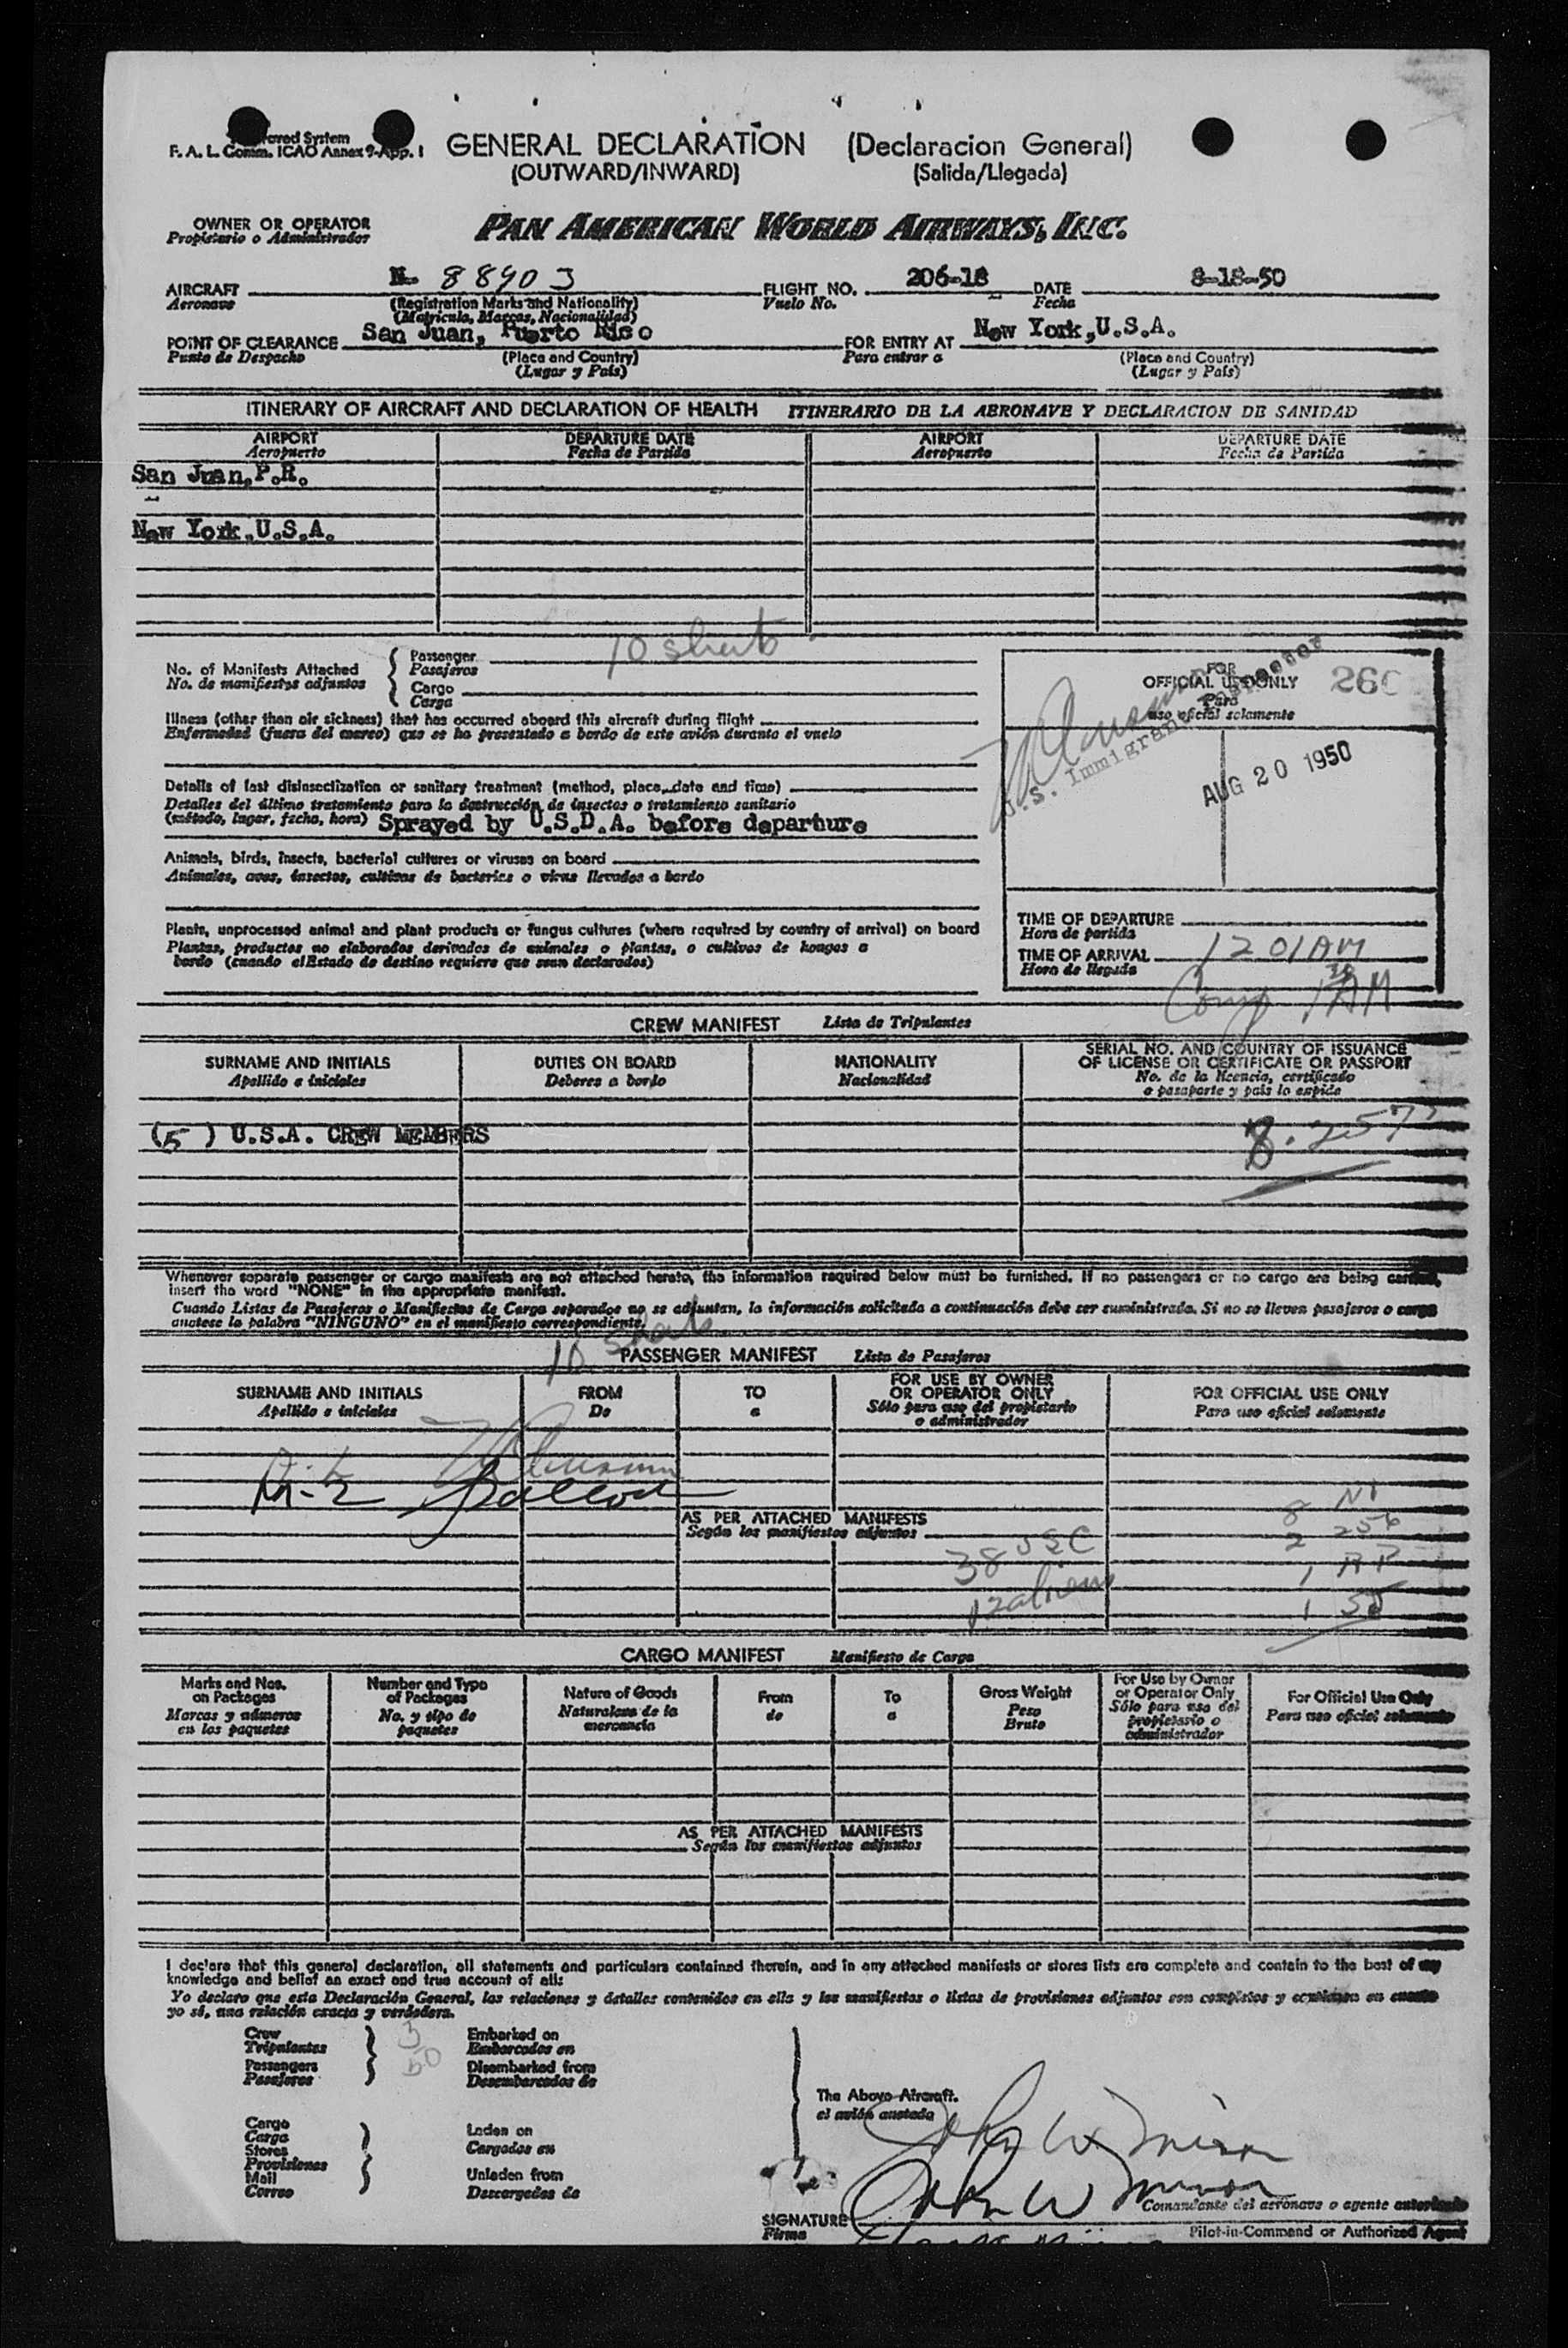 F. A. L. Comm. ICAO Annex 9-App. 1
GENERAL DECLARATION (Declaracion General)
(OUTWARD/INWARD) (Salida/Llegada)
OWNER OR OPERATOR
Propietario o Administrador
PAN AMERICAN WORLD AIRWAYS, INC.
AIRCRAFT N. 88903 FLIGHT NO. 206-18 DATE 8-18-50
Aeronave (Registration Marks and Nationality) Vuelo No. Fecha
(Matricula, Marcas, Nacionalidad)
POINT OF CLEARANCE San Juan, Puerto Rico FOR ENTRY AT New York, U.S.A.
Punto de Despacho (Place and Country) Para entrar a (Place and Country)
(Lugar y País) (Lugar y País)
ITINERARY OF AIRCRAFT AND DECLARATION OF HEALTH ITINERARIO DE LA AERONAVE Y DECLARACION DE SANIDAD
AIRPORT DEPARTURE DATE AIRPORT DEPARTURE DATE
Aeropuerto Fecha de Partida Aeropuerto Fecha de Partida
San Juan, P.R.
New York, U.S.A.
No. of Manifests Attached Passenger 10 sheets
No. de manifiestos adjuntos Pasajeros
Cargo
Carga
Illness (other than air sickness) that has occurred aboard this aircraft during flight
Enfermedad (fuera del mareo) que se ha presentado a bordo de este avión durante el vuelo
Details of last disinsectization or sanitary treatment (method, place, date and time)
Detalles del último tratamiento para la destrucción de insectos o tratamiento sanitario
(método, lugar, fecha, hora) Sprayed by U.S.D.A. before departure
Animals, birds, insects, bacterial cultures or viruses on board
Animales, aves, insectos, cultivos de bacterias o virus llevados a bordo
Plants, unprocessed animal and plant products or fungus cultures (where required by country of arrival) on board
Plantas, productos no elaborados derivados de animales o plantas, o cultivos de hongos a
bordo (cuando el Estado de destino requiere que sean declarados)
FOR
OFFICIAL USE ONLY
Para
uso oficial solamente
U.S. Immigrant Inspector
AUG 20 1950
TIME OF DEPARTURE
Hora de partida
TIME OF ARRIVAL 1201AM
Hora de llegada
Comp 1 30 AM
CREW MANIFEST Lista de Tripulantes
SURNAME AND INITIALS DUTIES ON BOARD NATIONALITY SERIAL NO. AND COUNTRY OF ISSUANCE
OF LICENSE OR CERTIFICATE OR PASSPORT
Apellido e iniciales Deberes a bordo Nacionalidad No. de la licencia, certificado
o pasaporte y país lo expide
(5) U.S.A. CREW MEMBERS
Whenever separate passenger or cargo manifests are not attached hereto, the information required below must be furnished. If no passengers or no cargo are being carried,
insert the word "NONE" in the appropriate manifest.
Cuando Listas de Pasajeros o Manifiestos de Carga separados no se adjuntan, la información solicitada a continuación debe ser suministrada. Si no se lleven pasajeros o carga
anotese la palabra "NINGUNO" en el manifiesto correspondiente.
10 sheets
PASSENGER MANIFEST Lista de Pasajeros
SURNAME AND INITIALS FROM TO FOR USE BY OWNER
OR OPERATOR ONLY FOR OFFICIAL USE ONLY
Apellido e iniciales De a Sólo para uso del propietario
o administrador Para uso oficial solamente
AS PER ATTACHED MANIFESTS
Según los manifiestos adjuntos
38 USC
12 aliens
CARGO MANIFEST Manifiesto de Carga
Marks and Nos.
on Packages
Marcas y números
en los paquetes
Number and Type
of Packages
No. y tipo de
paquetes
Nature of Goods
Naturaleza de la
mercancia
From
de
To
a
Gross Weight
Peso
Bruto
For Use by Owner
or Operator Only
Sólo para uso del
propietario o
administrador
For Official Use Only
Para uso oficial solamente
AS PER ATTACHED MANIFESTS
Según los manifiestos adjuntos
I declare that this general declaration, all statements and particulars contained therein, and in any attached manifests or stores lists are complete and contain to the best of my
knowledge and belief an exact and true account of all:
Yo declaro que esta Declaración General, las relaciones y detalles contenidos en ella y los manifiestos o listas de provisiones adjuntos son completos y contienen en cuanto
yo sé, una relación exacta y verdadera.
Crew Embarked on
Tripulantes Embarcados en
Passengers 50 Disembarked from
Pasajeros Desembarcados de
The Above Aircraft.
el avión anotado
Cargo Laden on
Carga Cargados en
Stores
Provisiones
Mail Unladen from
Correo Descargados de
John W Minor
John W Minor
Comandante del aeronave o agente autorizado
SIGNATURE
Firma
Pilot-in-Command or Authorized Agent